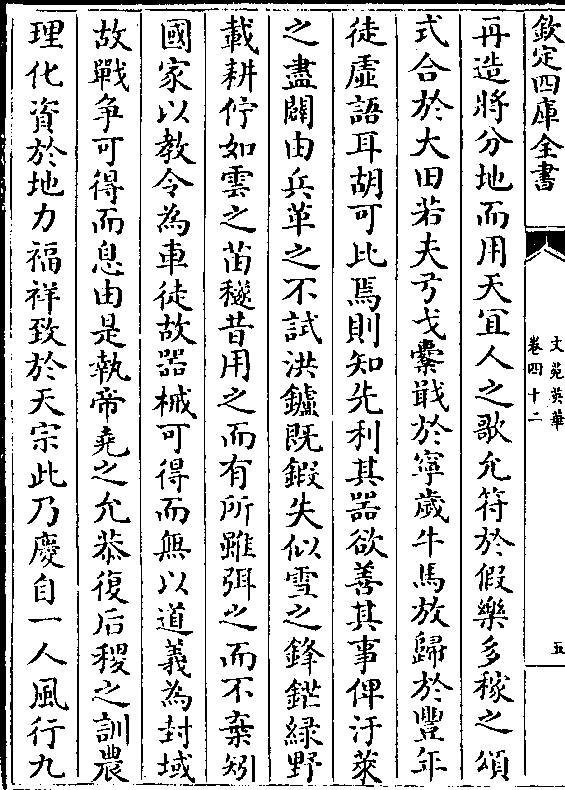 欽定四庫全書
文苑英華
卷四十二
五
再造將分地而用天宜人之歌允符於假樂多稼之頌
式合於大田若夫弓戈櫜戢於寧歲牛馬放歸於豐年
徒虛語耳胡可比焉則知先利其器欲善其事俾汙萊
之盡闢由兵革之不試洪鑪既鍜失似雪之鋒鋩緑野
載耕佇如雲之苗穟昔用之而有所雖弭之而不棄矧
國家以教令為車徒故器械可得而無以道義為封域
故戰争可得而息由是執帝堯之允恭復后稷之訓農
理化資於地力福祥致於天宗此乃慶自一人風行九